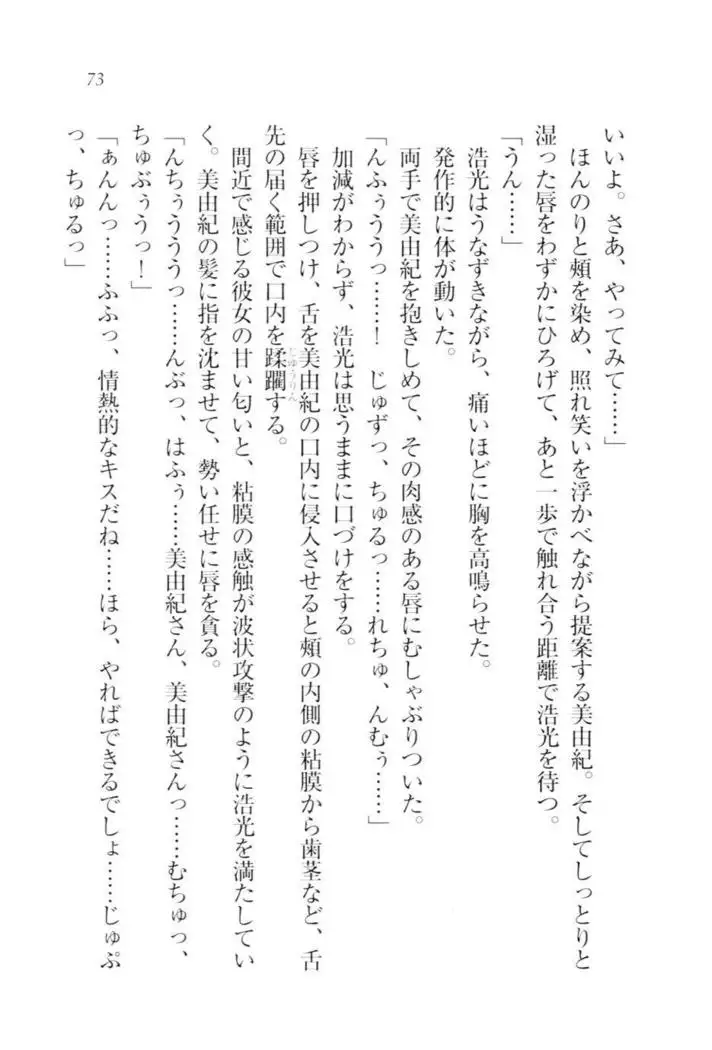 73
いいよ。さあ、やってみて……」
ほんのりと頰を染め、照れ笑いを浮かべながら提案する美由紀。そしてしっとりと
湿った唇をわずかにひろげて、あと一歩で触れ合う距離で浩光を待つ。
「うん……」
浩光はうなずきながら、痛いほどに胸を高鳴らせた。
発作的に体が動いた。
両手で美由紀を抱きしめて、その肉感のある唇にむしゃぶりついた。
「んふぅううっ……！　じゅずっ、ちゅるっ……れちゅ、んむぅ……」
加減がわからず、浩光は思うままに口づけをする。
唇を押しつけ、舌を美由紀の口内に侵入させると頰の内側の粘膜から歯茎など、舌
先の届く範囲で口内を蹂躙する。
じゅうりん
間近で感じる彼女の甘い匂いと、粘膜の感触が波状攻撃のように浩光を満たしてい
く。美由紀の髪に指を沈ませて、勢い任せに唇を貪る。
「んちぅううっ……んぶっ、はふぅ……美由紀さん、美由紀さんっ……むちゅっ、
ちゅぶぅうっ！」
「ぁんんっ……ふふっ、情熱的なキスだね……ほら、やればできるでしょ……じゅぷ
っ、ちゅるっ」